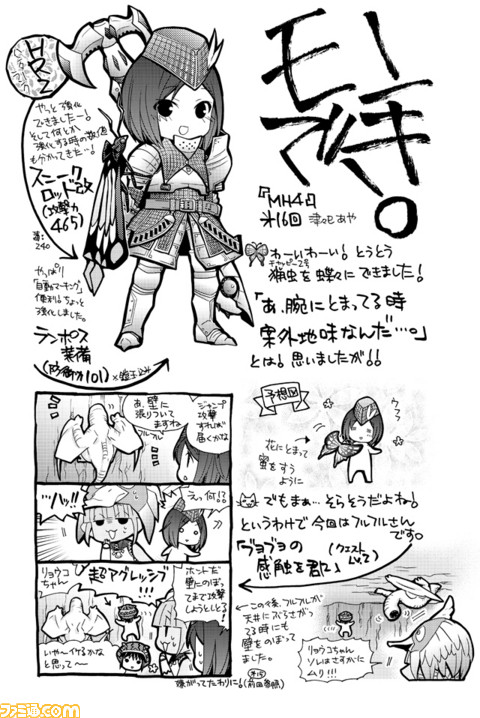 モーキン
で!。
『MH4』
第16回 津々巳あや
HR2
やっと強化
できましたー!
そして何とか
強化する時の数値
も分かってきた…!
スニーク
ロッド改
(攻撃力
465)
旧:
240
やっぱり
「自動マーキング」
便利!ちょっと
強化しました。
ランポス
装備
(防御力101)
わーいわーい!とうとう
チャッピー2号
猟虫を蝶々にできました!
「あ、腕にとまってる時
案外地味なんだ…。」
とは!思いましたが!!
予想図
ウフフ
花にとまって
蜜をすう
ように
でもまぁ…そらそうだよね!
というわけで今回はフルフルさん
です。
「ブヨブヨの
感触を君に」
(クエスト
Lv.2)
ジャンプ
攻撃
すれば
届くかな
あ、壁に
張りついて
ますね
フルフル
…ハッ!!
えっ何!?
ホントだ
壁にのぼっ
てまで攻撃
(ようとしてる)
超アグレッシブ
リョウコ
ちゃん
いや〜イケるかな
と思って〜
←この後、フルフルが
天井にぶらさがっ
てる時にも
壁をのぼって
ました。
嫌がってたわりに!
(前回参照)
リョウコちゃん
ソレはさすがに
ムリ!!!
ファミ通.com